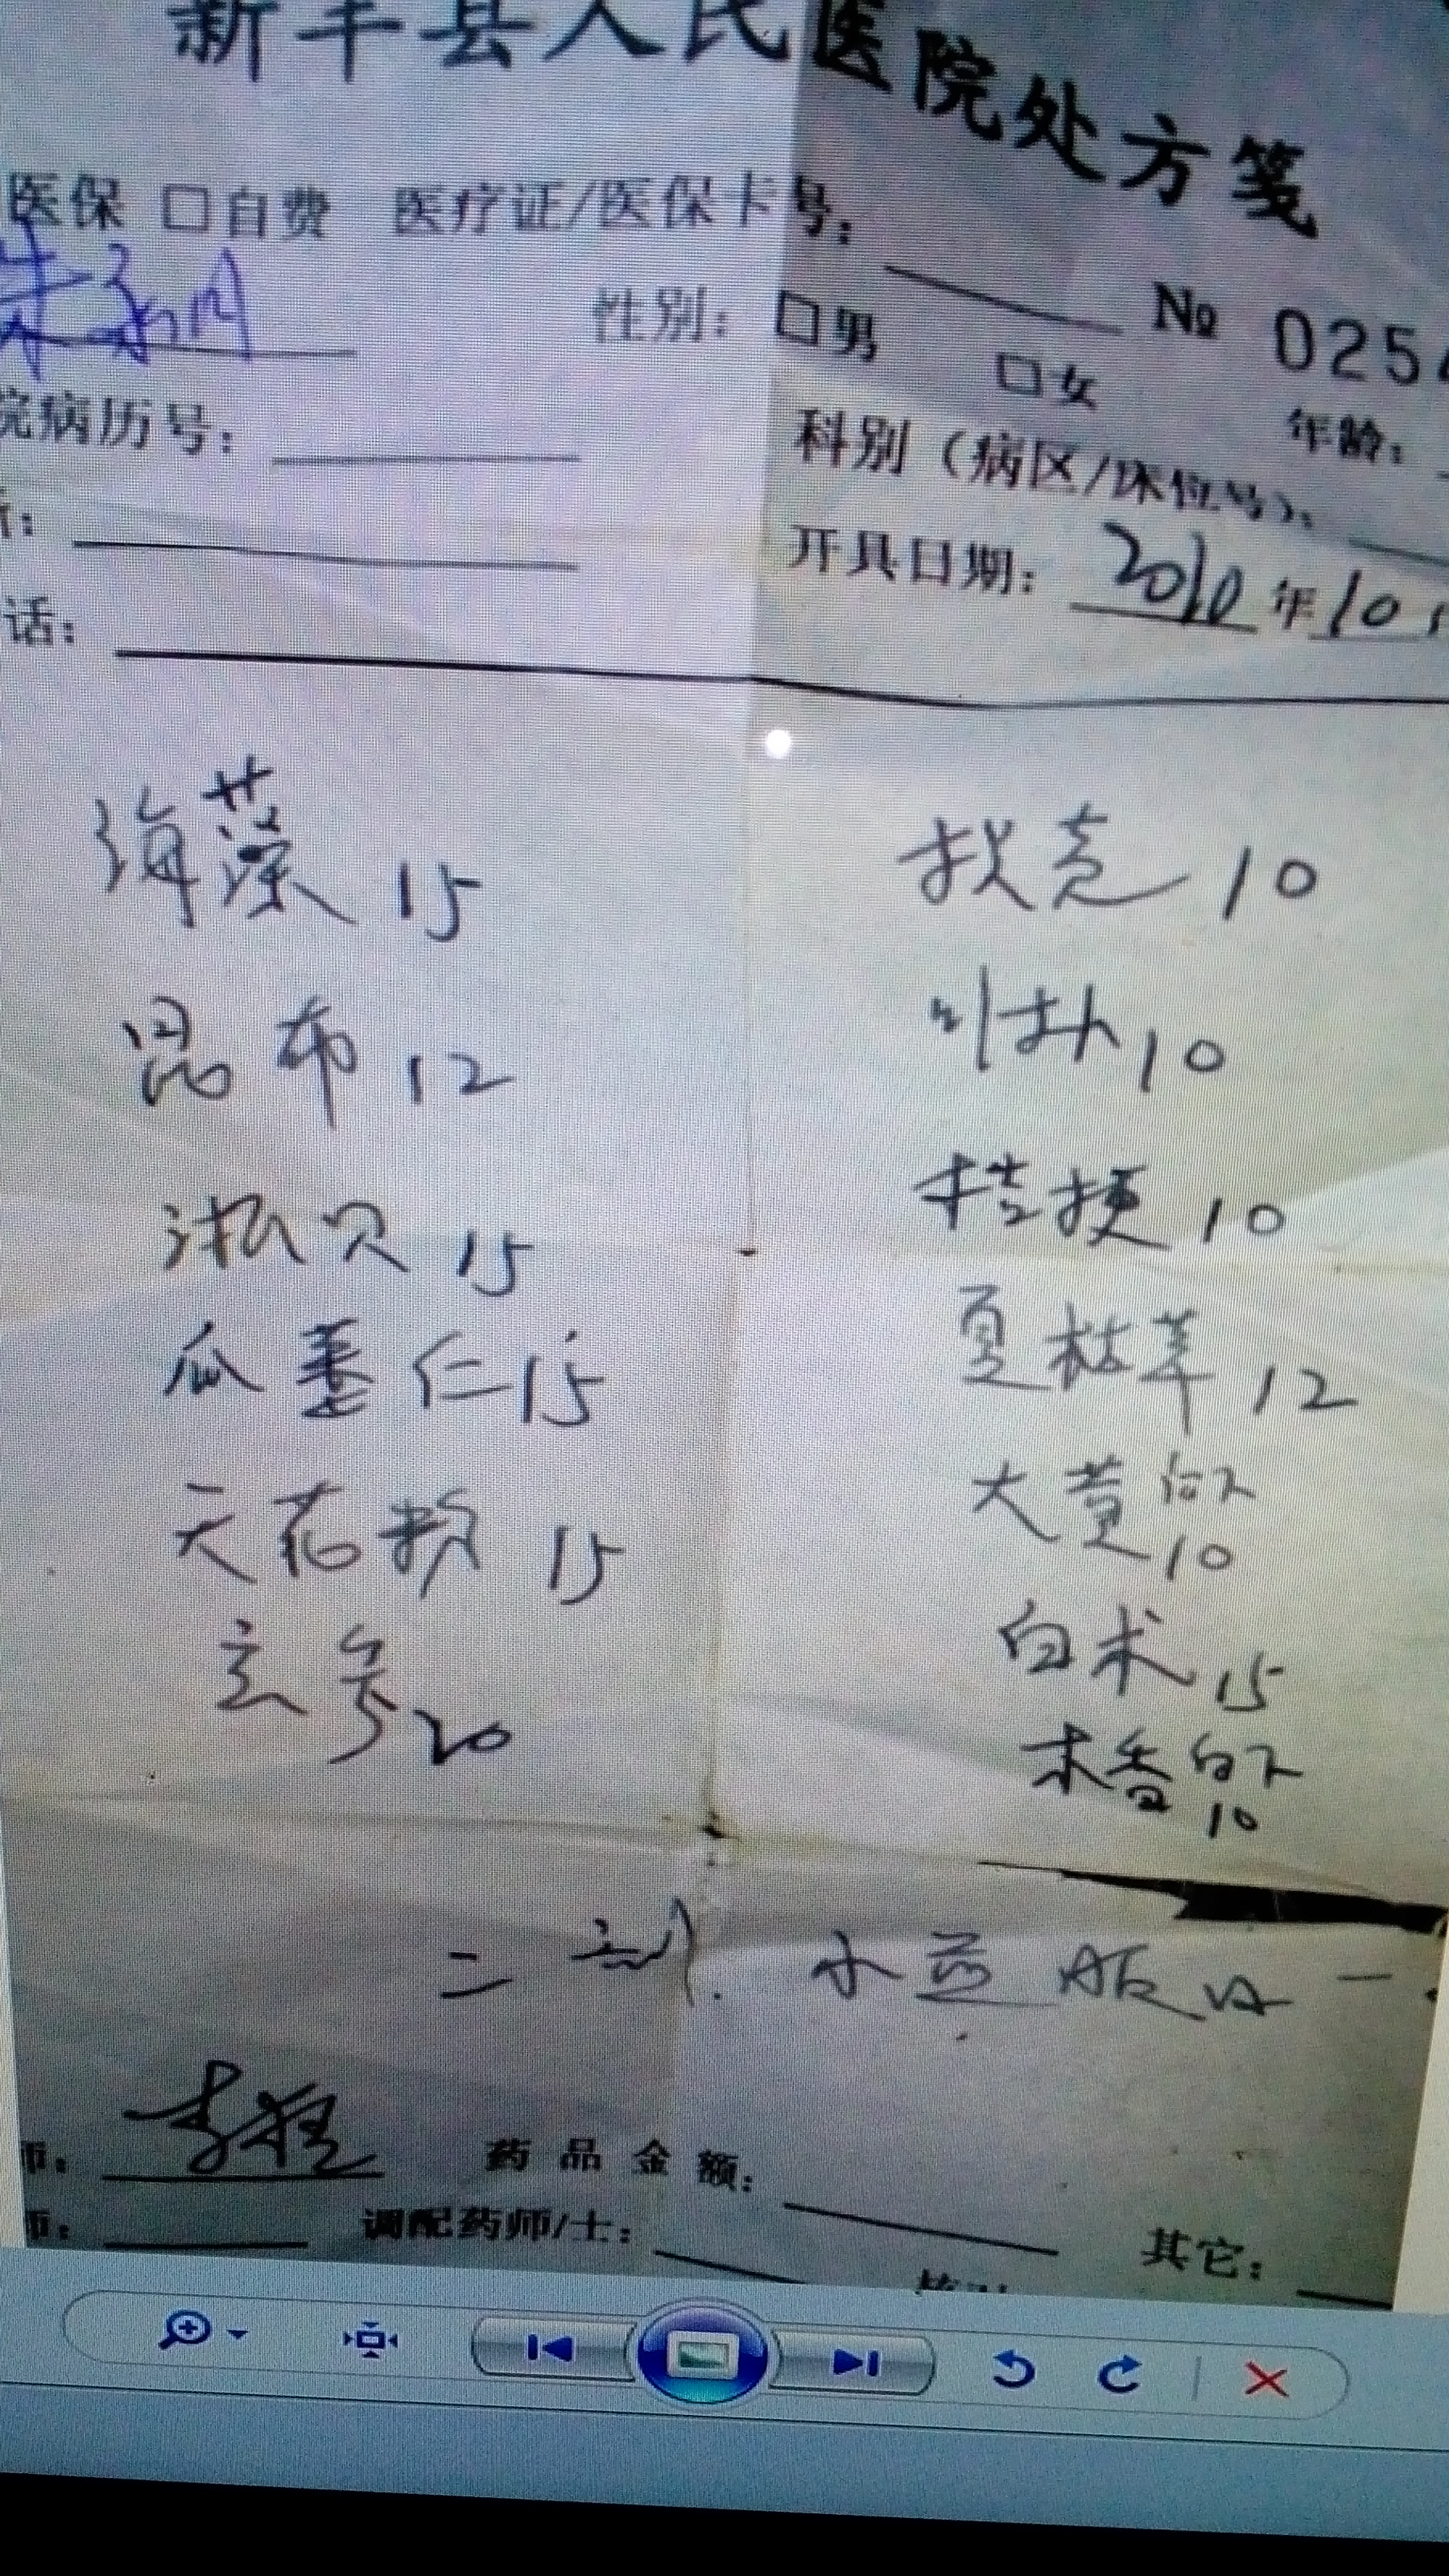 新丰县人民医院处方笺
医保 口自费 医疗证/医保卡号:
№ 025
性别: 口男 口女
年龄:
院病历号:
科别(病区/床位号):
开具日期: 2010年10
话:
海藻 15
枳壳 10
昆布 12
川朴 10
浙贝 15
桔梗 10
瓜蒌仁 15
夏枯草 12
天花粉 15
大黄 后下 10
玄参 20
白术 15
木香 后下 10
二剂. 水煎服 日一
师:
药品金额:
师:
调配药师/士:
其它: